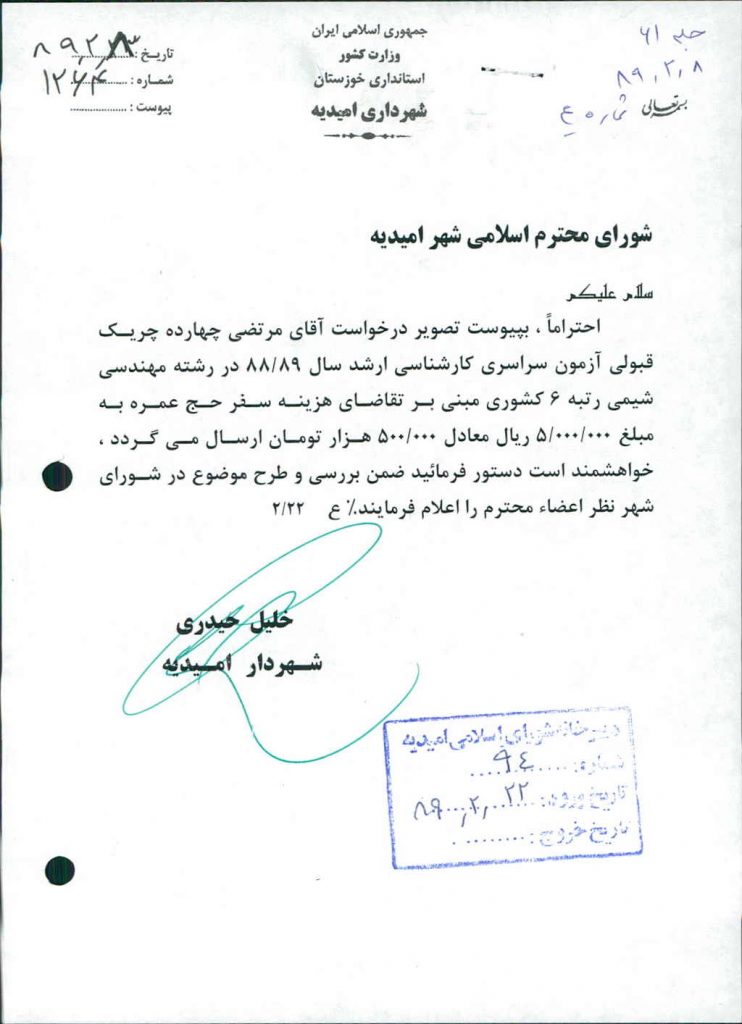 جمهوری اسلامی ایران
وزارت کشور
استانداری خوزستان
شهرداری امیدیه
تاریخ : ۸۹,۲,
شماره : ۱۲۶۴
پیوست : ..................
۶۱
۸۹,۲,۸
شماره ع
بسمه تعالی
شورای محترم اسلامی شهر امیدیه
سلام علیکم
احتراماً ، بپیوست تصویر درخواست آقای مرتضی چهارده چریک
قبولی آزمون سراسری کارشناسی ارشد سال ۸۸/۸۹ در رشته مهندسی
شیمی رتبه ۶ کشوری مبنی بر تقاضای هزینه سفر حج عمره به
مبلغ ۵/۰۰۰/۰۰۰ ریال معادل ۵۰۰/۰۰۰ هزار تومان ارسال می گردد ،
خواهشمند است دستور فرمائید ضمن بررسی و طرح موضوع در شورای
شهر نظر اعضاء محترم را اعلام فرمایند.٪ ع ۲/۲۲
خلیل حیدری
شهردار امیدیه
دبیرخانه شورای اسلامی امیدیه
شماره: ۹۴
تاریخ ورود: ۸۹,۲,۲۲
تاریخ خروج: ...........